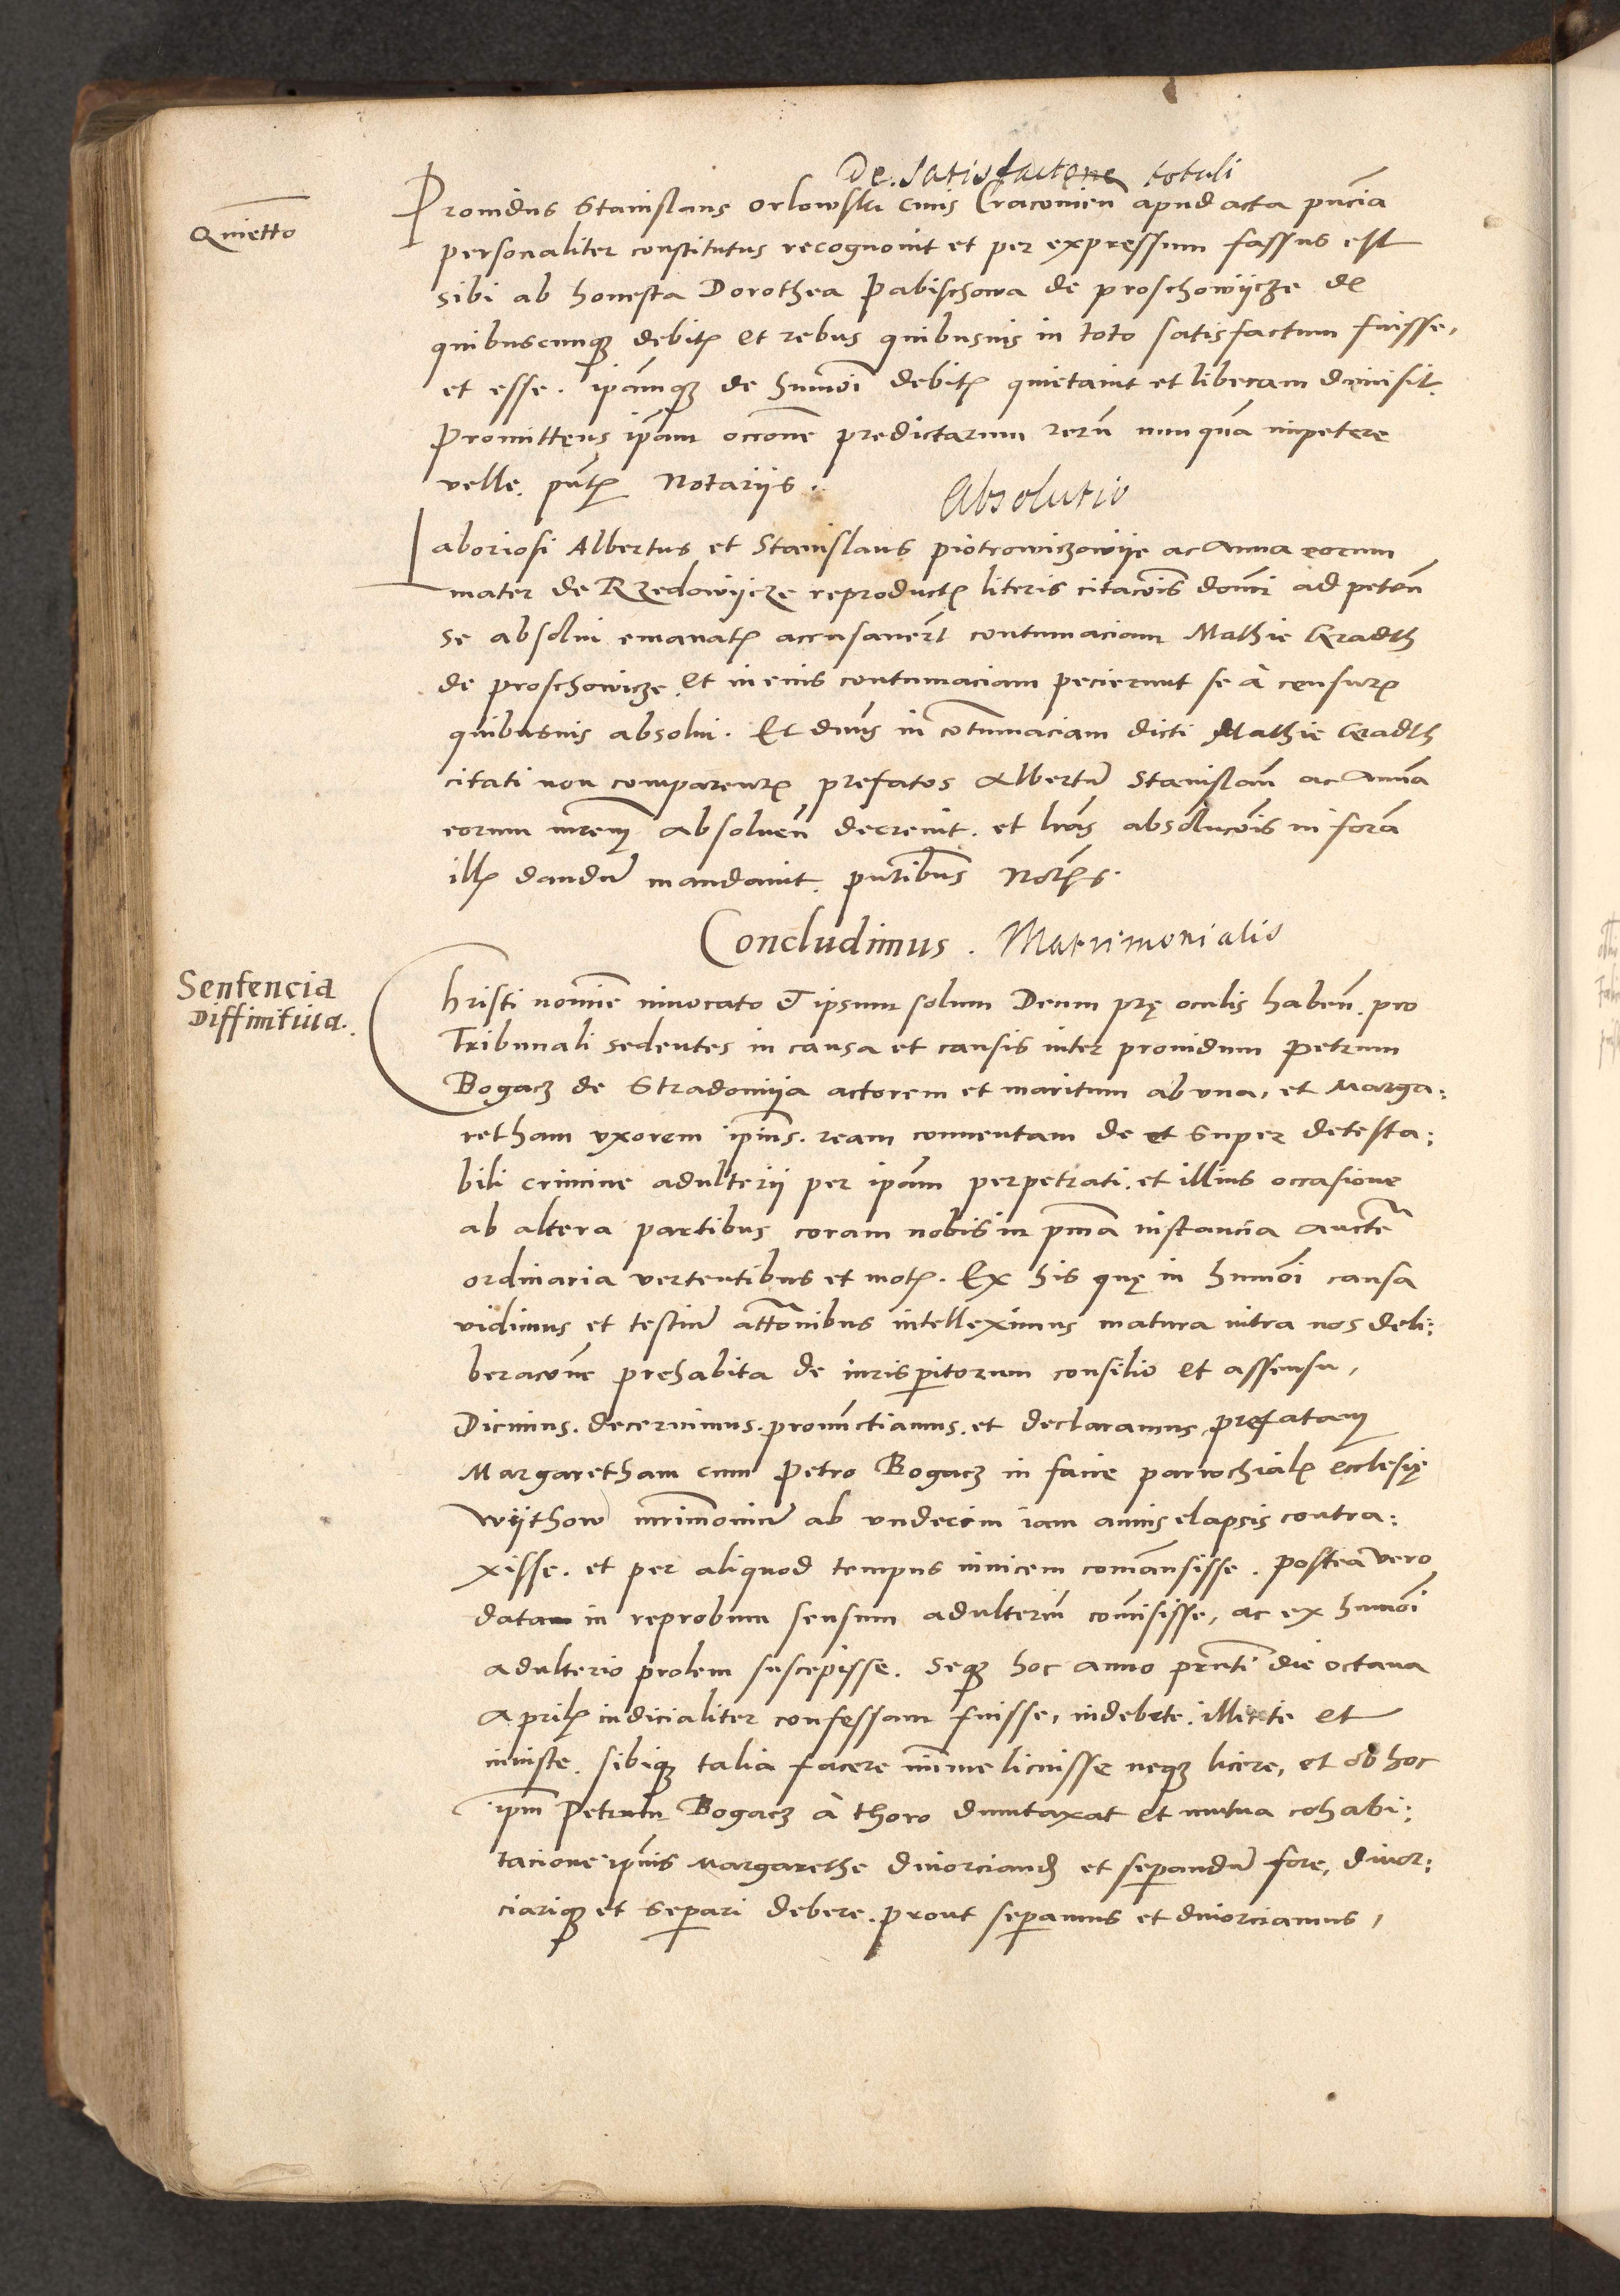 De satisfactone totali
Quietto
Prouidus Stanislaus Orlowsky ciuis Cracouien̄ apud acta pn̄cia
personaliter constitutus recognouit et per expressum fassus est
sibi ab honesta Dorothea Pabischowa de proschowijcze de
quibuscunqꝫ debitꝭ et rebus quibusuis in toto satisfactum fuisse,
et esse. ip̄amqꝫ de hmōi debitꝭ quietauit et liberam dimisit.
Promittens ip̄am occōne predictarum rerū nunquā impetere
velle. pn̄tꝭ Notarijs.
Absolutio
Laboriosi Albertus et Stanislaus piotrowiczowije ac Anna eorum
mater de Rzedowijcze reproductꝭ literis citacōis dom̄i ad peten̄
se absolui emanatꝭ accusauerūt contumaciam Mathie Gradth
de proschowicze. et in eius contumaciam pecierunt se à censurꝭ
quibusuis absolui. Et dn̄us in cōtumaciam dicti Mathie Gradth
citati non comparentꝭ prefatos Albertū Stanislaū ac Annā
eorum mr̄em absoluen̄ decreuit. et lr̄as absolucōis in formā
illꝭ dandū mandauit. pn̄tibus Notrꝭs.
Concludimus. Matrimonialis
Sentencia
Diffinitiua.
Christi nomīe inuocato & ipsum solum Deum prę oculis haben̄. pro
Tribunali sedentes in causa et causis inter prouidum Petrum
Bogacz de Stradomija actorem et maritum ab vna, et Marga:
retham vxorem ip̄ius. ream conuentam de et super detesta:
bili crimine adulterij per ip̄am perpetrati. et illius occasione
ab altera partibus coram nobis in pm̄a instancia aucte
ordinaria vertentibus et motꝭ. Ex his quę in hmōi causa
vidimus et testiū att̄onibus intelleximus matura intra nos deli:
beracōne prehabita de iurisperitorum consilio et assensu,
Dicimus. decernimus. pronunctiamus. et declaramus prefatam
Margaretham cum Petro Bogacz in facie parrochialꝭ ecclesię
Wijthow mr̄imoniū ab vndecim iam annis elapsis contra:
xisse. et per aliquod tempus inuicem com̄ansisse. postea vero
datam in reprobum sensum adulteriū com̄isisse, ac ex hmōi
adulterio prolem suscepisse. Seqꝫ hoc anno pn̄ti die octaua
Aprilꝭ iudicialiter confessam fuisse, indebite. illicite et
iniuste. sibiqꝫ talia facere minime licuisse neqꝫ licere, et ob hoc
ip̄m Petrum Bogacz à thoro dumtaxat et mutua cohabi:
tacione ip̄ius Margarethe diuorciand̄ et separandū fore, diuor:
ciariqꝫ et separi debere. prout separamus et diuorciamus,